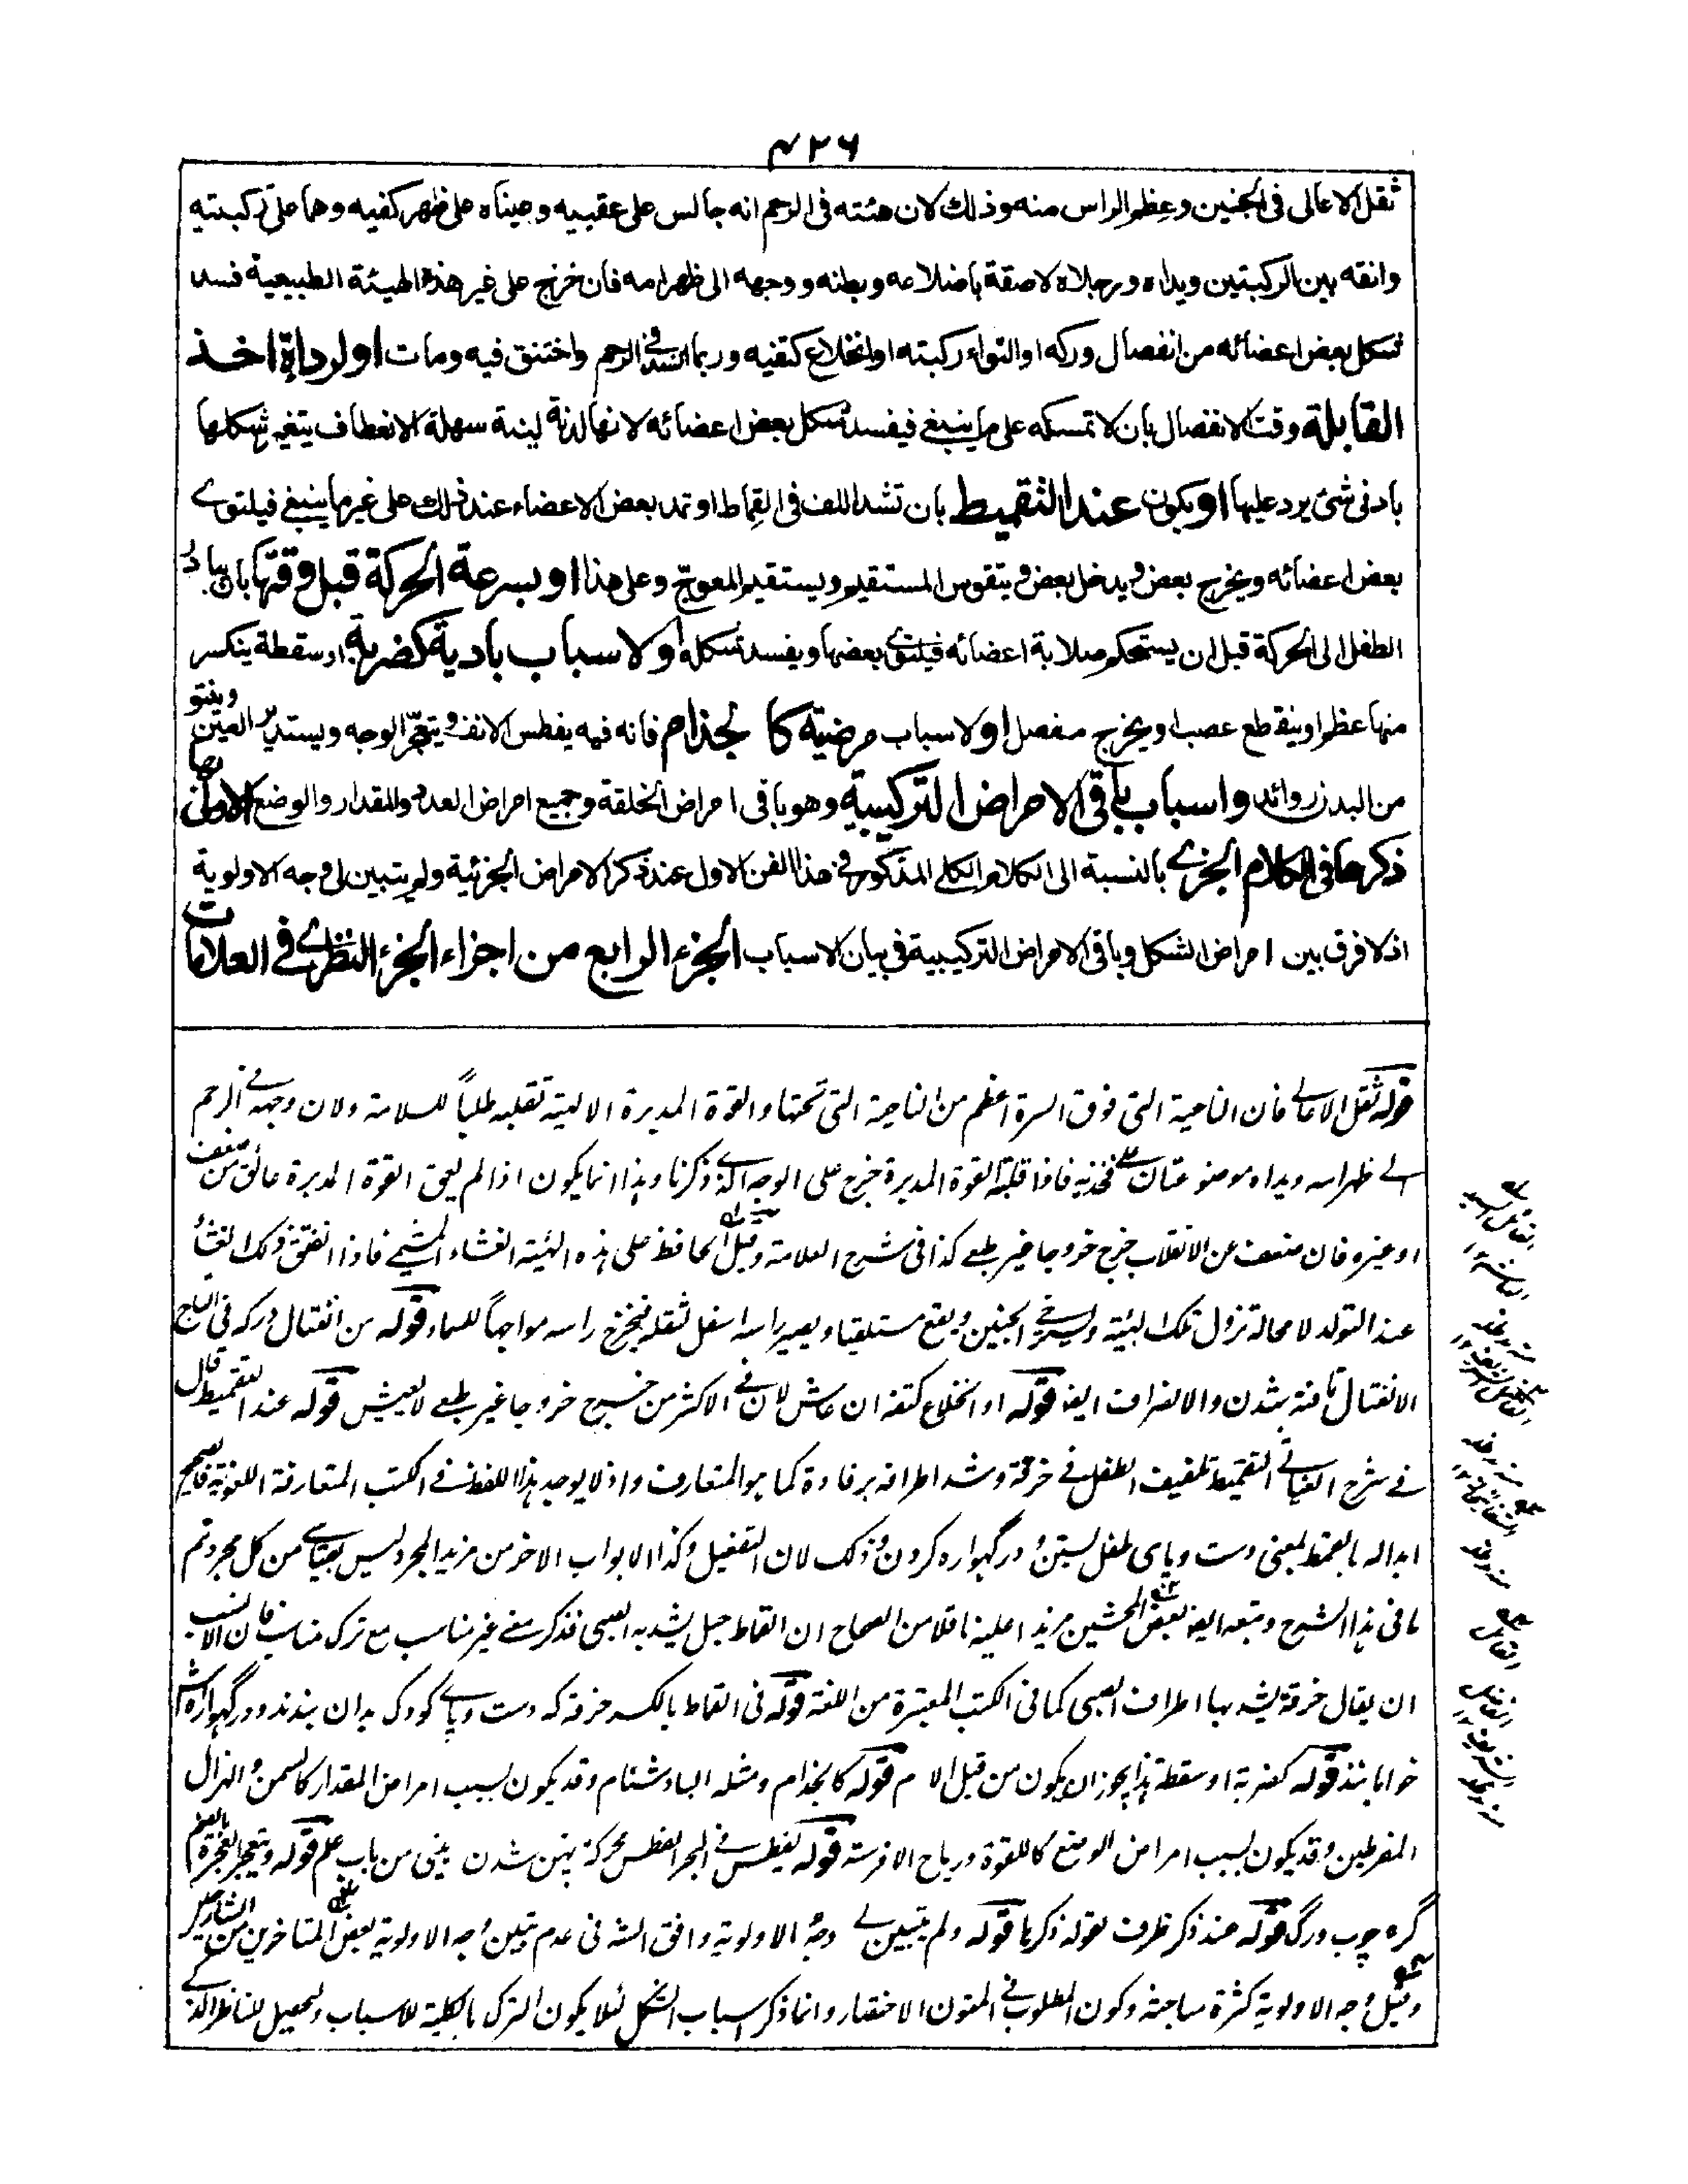 ۴۲۶
ثقل الاعالى فى الجنين وعظم الراس منه وذلك لان هئته فى الرحم انه جالس على عقبيه وعيناه على ظهر كفيه وهما على ركبتيه
وانفه بين الركبتين ويداه ورجلاه لاصقة باضلاعه وبطنه ووجهه الى ظهر امه فان خرج على غير هذه الهيئة الطبيعية فسد
شكل بعض اعضائه من انفصال وركه او التواء ركبته او انخلاع كتفيه وربما انسد فى الرحم واختنق فيه ومات او لرداءة اخذ
القابلة وقت الانفصال بان لا تمسكه على ما ينبغى فيفسد شكل بعض اعضائه لانها لدنة لينة سهلة الانعطاف يتغير شكلها
بادنى شئ يرد عليها او يكون عند التقميط بان تشد اللف فى القماط او تمد بعض الاعضاء عند ذلك على غير ما ينبغى فيلتوى
بعض اعضائه ويخرج بعض ويدخل بعض ويتقوس المستقيم ويستقيم المعوج وعلى هذا او بسرعة الحركة قبل وقتها بان يبادر
الطفل الى الحركة قبل ان يستحكم صلابة اعضائه فيلتوى بعضها ويفسد شكله او لاسباب بادية كضربة او سقطة ينكسر
منها عظم او ينقطع عصب او يخرج مفصل او لاسباب مرضية كالجذام فانه فيه يفطس الانف ويتعجر الوجه ويستدير العين وينتو
من البدن زوائد واسباب باقى الامراض التركيبية وهو باقى امراض الخلقة وجميع امراض العدد والمقدار والوضع الاولى بها
ذكرها فى الكلام الجزى بالنسبة الى الكلام الكلى المذكور فى هذا الفن الاول عند ذكر الامراض الجزئية ولم يتبين لى وجه الاولوية
اذ لا فرق بين امراض الشكل وباقى الامراض التركيبية فى بيان الاسباب الجزء الرابع من اجزاء الجزء النظرى فى العلامات
قوله ثقل الاعالى فان الناحية التى فوق السرة اعظم من الناحية التى تحتها والقوة المدبرة الالهية تقلبه طلباً للسلامة ولان وجهه فى الرحم
الى ظهر امه ويداه موضوعتان على فخذيه فاذا قلبته القوة المدبرة خرج على الوجه الذى ذكرنا وهذا انما يكون اذا لم يعق القوة المدبرة عائق من ضعف
او غيره فان ضعفت عن الانقلاب خرج خروجا غير طبعى كذا فى شرح العلامة وقيل الحافظ على هذه الهيئة الغشاء المشيمى فاذا انفتق ذلك الغشاء
عند التولد لا محالة تزول تلك الهيئة ويسترخى الجنين ويقع مستلقيا ويصير راسه اسفل لثقله فيخرج راسه مواجهاً للسماء قوله من انفتال وركه فى التاج
الانفتال تافته شدن والانصراف ايضا قوله او انخلاع كتفه ان عاش لان فى الاكثر من خرج خروجا غير طبعى لا يعيش قوله عند التقميط قال
فى شرح التقميط تلفيف الطفل فى خرقة وشد اطرافه برفادة كما هو المتعارف واذ لا يوجد هذا اللفظ فى الكتب المتعارفة اللغوية
ابداله بالقمط بمعنى دست وپاى طفل بستن در گهواره كردن وذلك لان التفعيل وكذا الابواب الاخر من مزيد المجرد ليس بقياسى من كل مجرد تم
ما فى هذا الشرح وتبعه ايضا بعض المحشين مزيدا عليه ناقلا من الصحاح ان القماط حبل يشد به الصبى فذكر معنى غير مناسب مع ترك مناسب فان الانسب
ان يقال خرقة يشد بها اطراف الصبى كما فى الكتب المعتبرة من اللغة قوله فى القماط بالكسر خرقه كه دست وپاى كودك بدان بندند ودر گهواره اش
خوابانند قوله كضربة او سقطة هذا يجوز ان يكون من قبل الام قوله كالجذام ومثله البادشنام وقد يكون بسبب امراض المقدار كالسمن والهزال
المفرطين وقد يكون بسبب امراض الوضع كاللقوة ورياح الافرسة قوله يفطس فى البحر الفطس محركة پهن شدن بينى من باب علم قوله ويتعجر العجرة بالضم
گره چوب ورگ قوله عند ذكر ظرف لقوله ذكرها قوله ولم يتبين لى وجه الاولوية وافق الشه فى عدم تبين وجه الاولوية بعض المتاخرين من الشارحين
وقيل وجه الاولوية كثرة مباحثه وكون المطلوب فى المتون الاختصار وانما ذكر اسباب الشكل لئلا يكون الترك بالكلية للاسباب وليحصل للناظر الذى